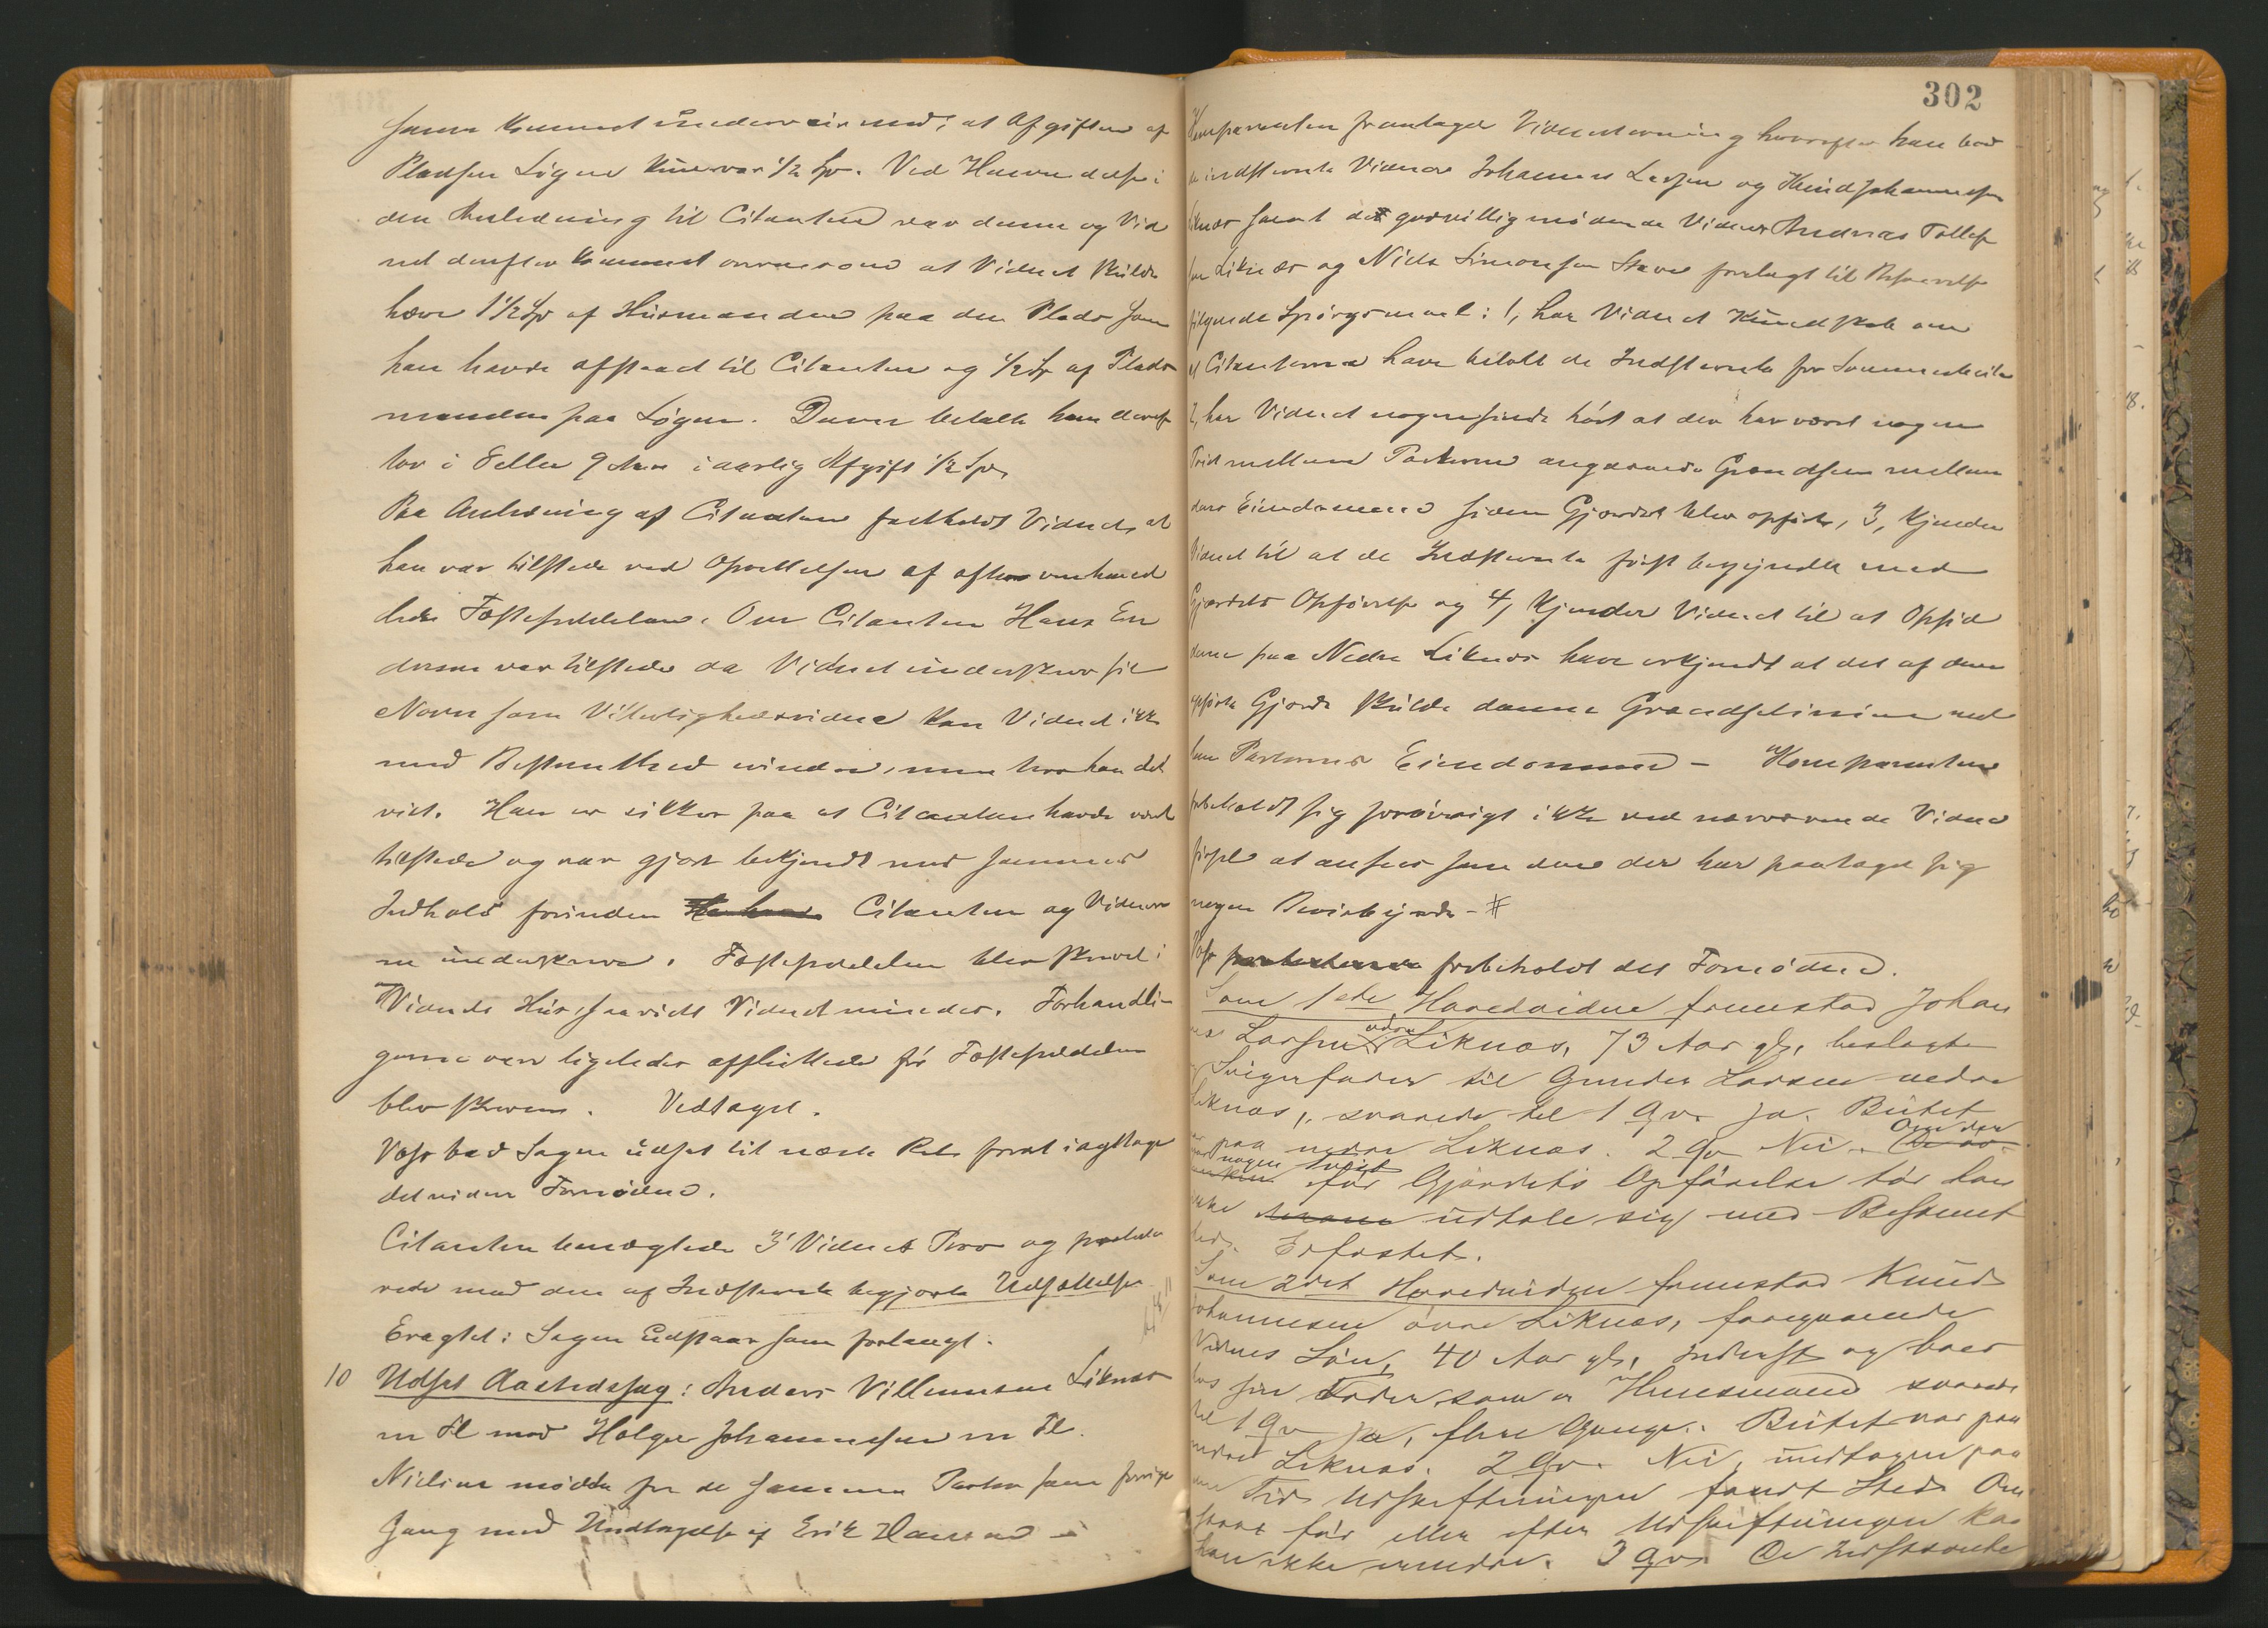 samme kommet underveir med, at Afgiften af
Pladsen Løgen kun var 1/2 Spr. Ved Hævedelse i
den Anledning til Citanten var denne og Vid
net derefter kommet overens om at Vidnet skulde
hæve 1 1/2 Spr af Husmanden paa den Plads som
han havde afstaaet til Citanten og 1/2 Sp af Plads
manden paa Løgen. Denne betalte ham deref
ter i 8 eller 9 Aar i aarlig Afgift 1/2 Spr.
Paa Anledning af Citanten fastholdt Vidnet, at
han var tilstede ved Oprettelsen af
Fæsteseddelen. Om Citanten Hans En
dresen var tilstede da Vidnet underskrev sit
Navn som Vitterlighedsvidne kan Vidnet ikke
med Bestemthed mindes, men tror han det
vist. Han er sikker paa at Citanten havde været
tilstede og var gjort bekjendt med sammes
Indhold forinden Citanten og Vidner
ne underskrev. Fæsteseddelen blev skrevet i
Vidnets Hus, saavidt Vidnet mindes. Forhandlin
gerne vare ligeledes afsluttede før Fæsteseddelen
blev skreven. Vedtaget.
Vogt bad Sagen udsat til næste Ret for at iagttage
det videre Fornødne.
Citanten benægtede 3' Vidnets Prov og proteste
rede mod den af Indstevnte begjærte Udsættelse
Eragtet: Sagen udstaar som forlangt.
10 Udsat Aastedssag: Anders Villumsen Liknes
m Fl mod Holger Johannessen m Fl.
Nielsen mødte for de samme Parter som forrige
Gang med Undtagelse af Erik Hansen
302
Komparenten fremlagde Vidnestevning hvorefter han bad
de indstevnte Vidner Johannes Larsen og Knud Johannessen
Liknes samt de godvillig mødende Vidner Andreas Tollef
sen Liknes og Nils Simonsen forelagt til Besvarelse
følgende Spørgsmaal: 1, har Vidnet Kundskab om
at Citanterne have betalt de Indstevnte for
2, har Vidnet nogensinde hørt at der har været nogen
Trid mellem Parterne angaaende Grændsen mellem
deres Eiendomme siden Gjærdet blev opført, 3, Kjender
Vidnet til at de Indstevnte først begyndte med
Gjærdets Opførelse og 4, Kjender Vidnet til at Opsid
derne paa Nedre Liknes have erkjendt at det af dem
opførte Gjærde skulde danne Grændselinien mel
lem Parternes Eiendomme – Komparenten
forbeholdt sig forøvrigt ikke ved nærværende Vidne
førsel at ansees som den der har paataget sig
nogen Bevisbyrde – #
Vogt forbeholdt det Fornødne.
Som 1ste Hovedvidne fremstod Johan
nes Larsen nedre Liknes, 73 Aar gl, beslægtet
Svigerfader til Gunder Larsen nedre
Liknes, svarede til 1 Qv. Ja. Budet
var paa nedre Liknes. 2 Qv Nei. Om der
var nogen Tvist før Gjærdets Opførelse tør han
ikke udtale sig med Bestemt
hed. Erfæstet.
Som 2det Hovedvidne fremstod Knud
Johannesen øvre Liknes, foregaaende
Vidnes Søn, 40 Aar gl, Inderst og boer
hos sin Fader som er Huusmand svarede
til 1 Qv Ja, flere Gange. Budet var paa
nedre Liknes. 2 Qv. Nei, undtagen paa
den Tid Udskiftningen fandt Sted. Om
før eller efter Udskiftningen kan
han ikke erindre. 3 Qv. De Indstevnte